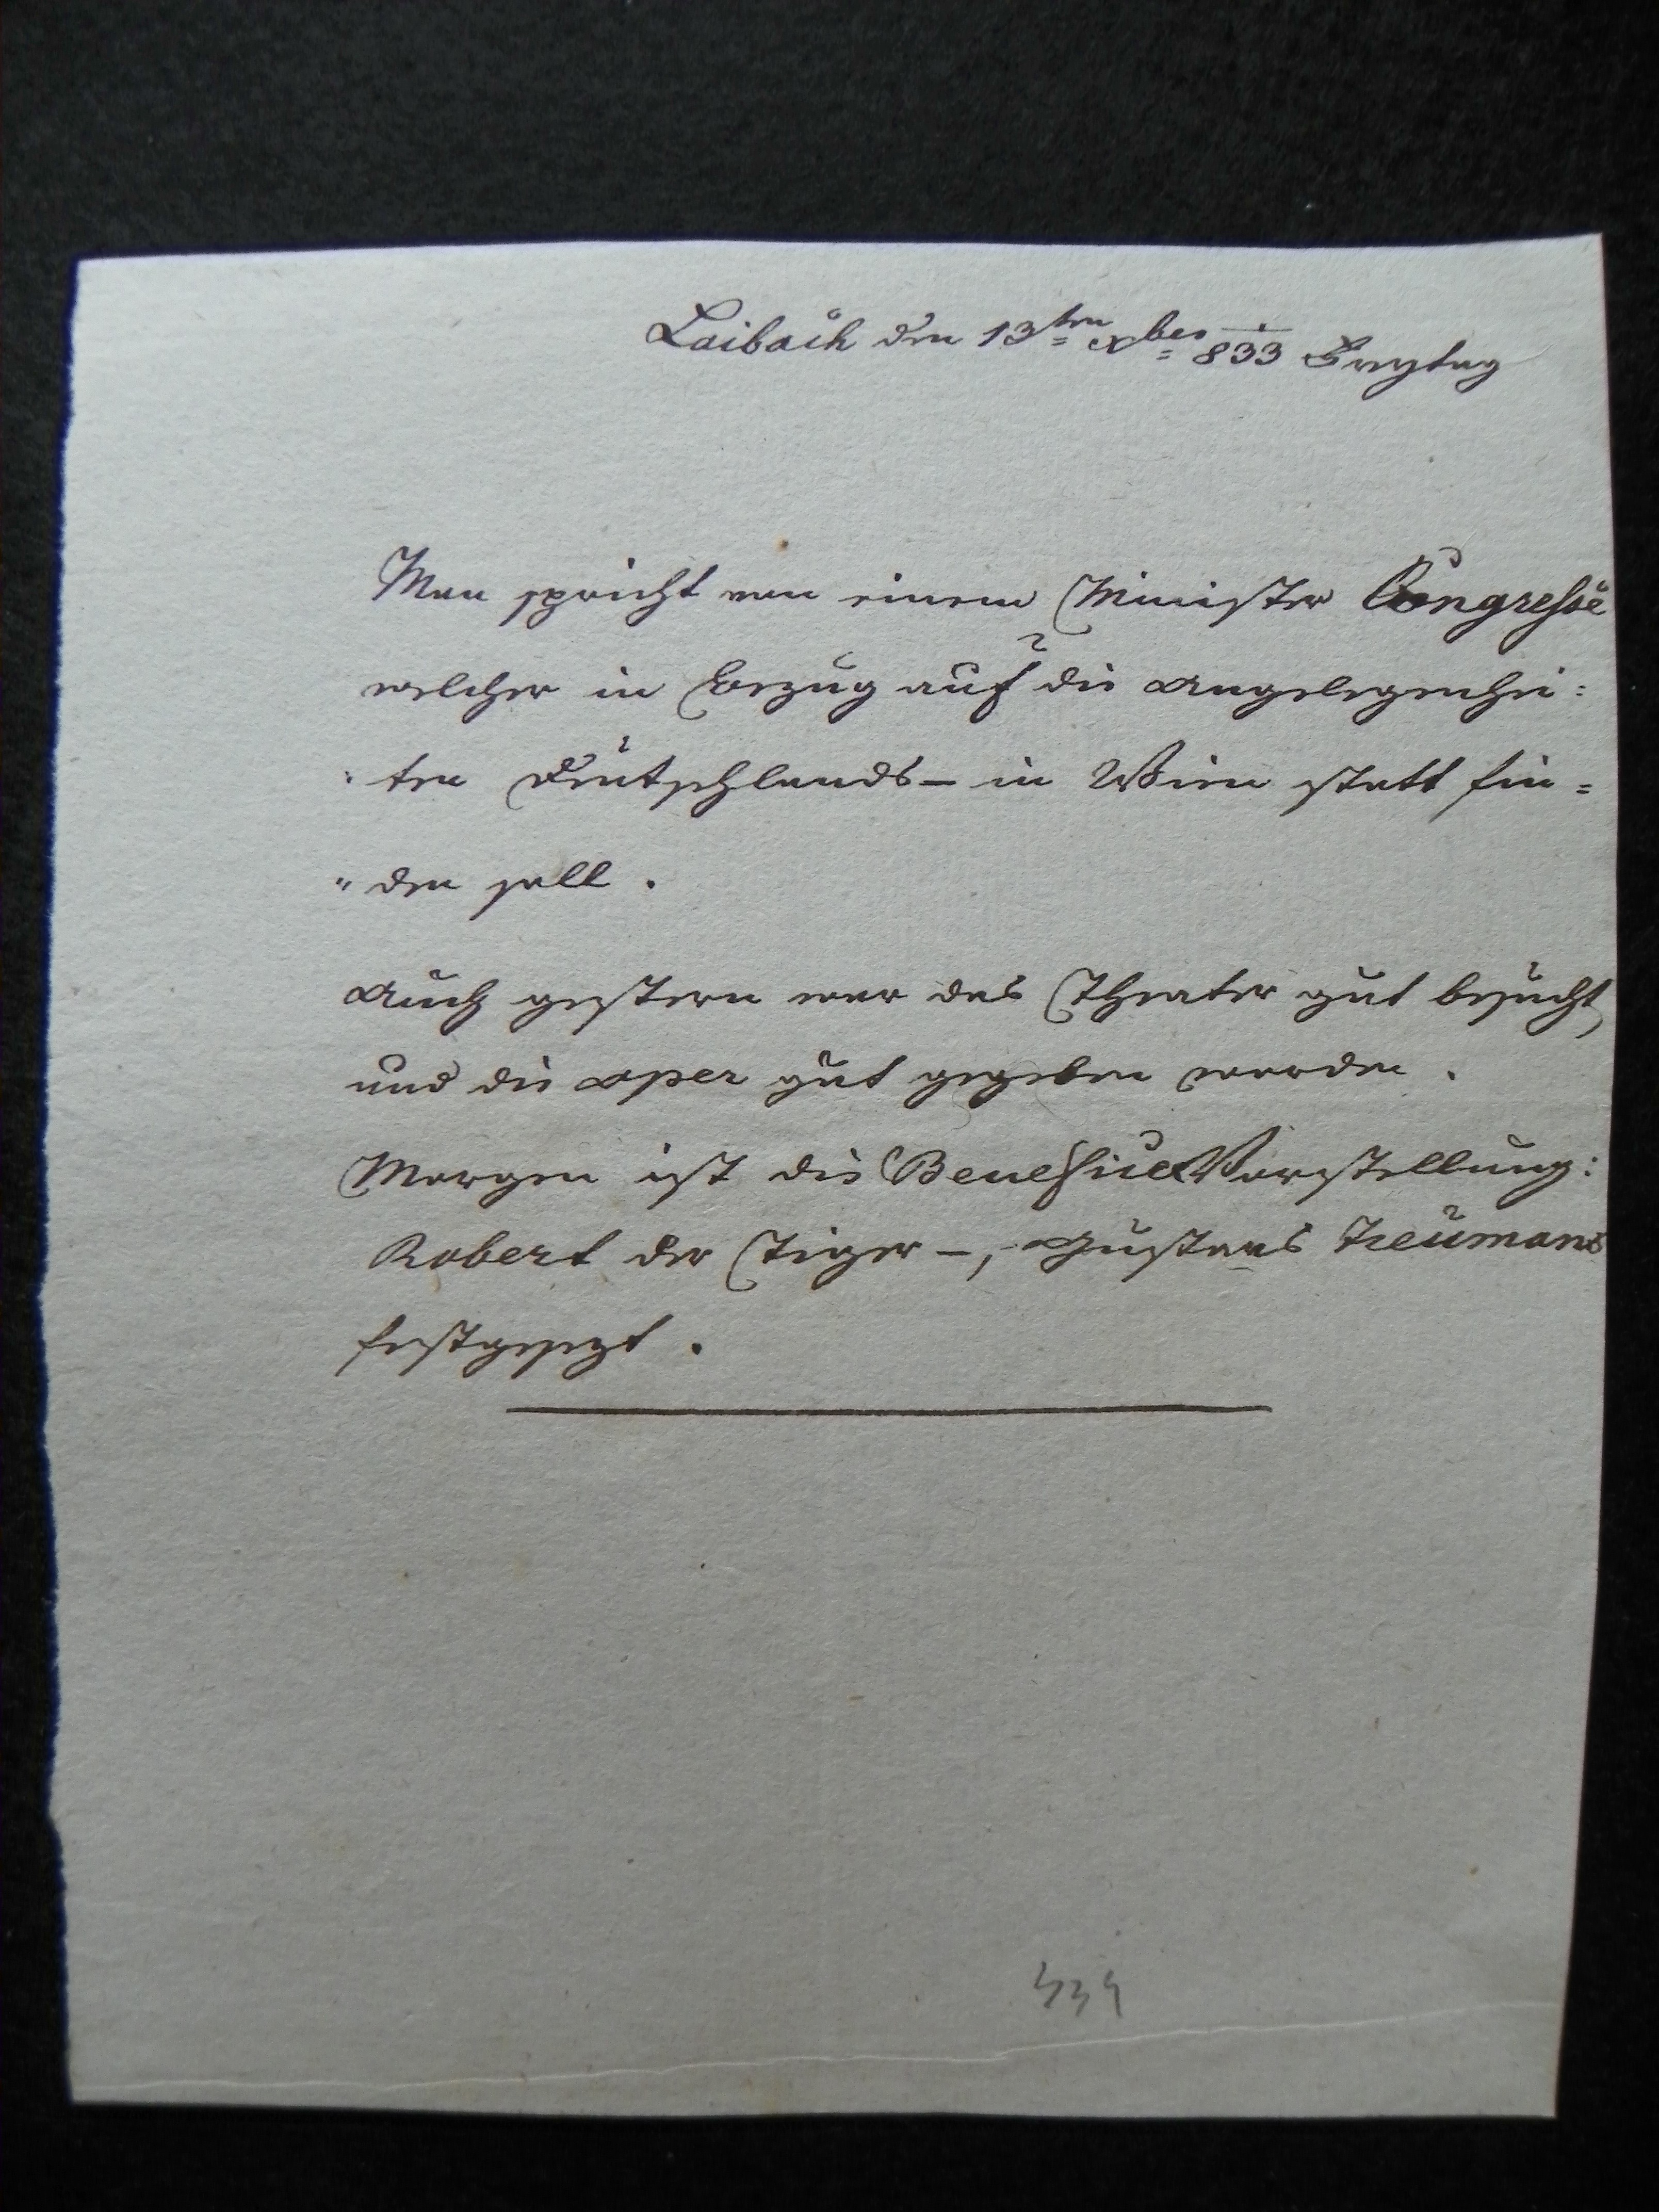 Laibach den 13ten Xber 833 Freytag
Man spricht von einem Minister Congresse
welcher in Bezug auf die Angelegenhei:
:ten Deutschlands – in Wien statt fin=
"den soll.
Auch gestern war das Theater gut besucht,
und die Oper gut gegeben worden.
Morgen ist die Benefice Vorstellung:
Robert der Tiger –, Gustavs Treumans
festgesezt.
439